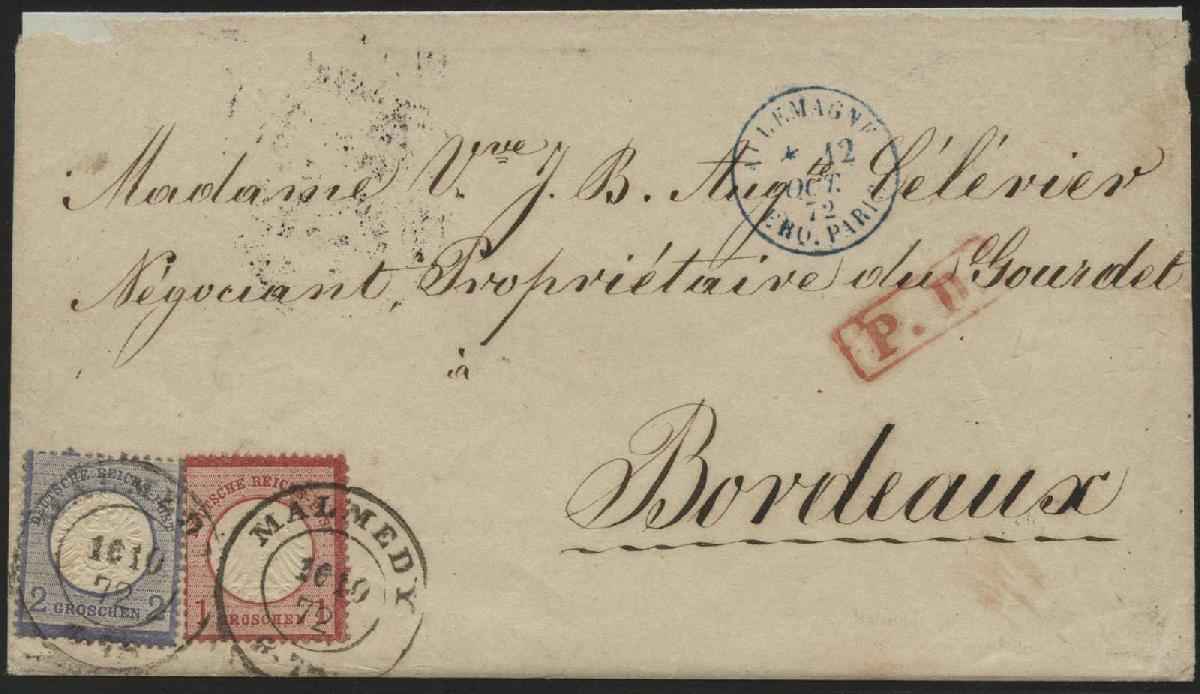 Madame Vve J. B. Augte Lélévier
Négociant, Propriétaire du Gourdet
à
Bordeaux
ALLEMAGNE
* 12
OCT.
72
ERQ. PARIS
P. D.
DEUTSCHE REICHS-POST
2 GROSCHEN 2
10
72
DEUTSCHE REICHS
1 GROSCHEN 1
MALMEDY
10
72